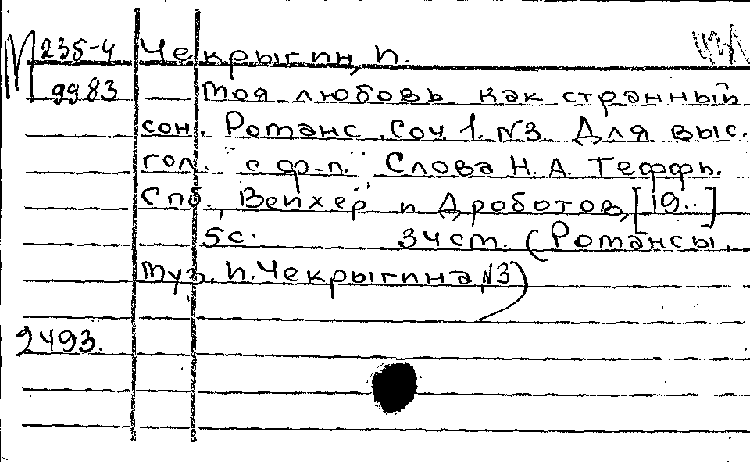 М 235-4 Чекрыгин, И.
9983 Моя любовь как странный
сон. Романс. Соч. 1. №3. Для выс.
гол. с ф-п. Слова Н. А. Теффи.
Спб., Вейхер и Дроботов, [19..]
5с. 34 см. (Романсы.
муз. И. Чекрыгина, №3)
2493.